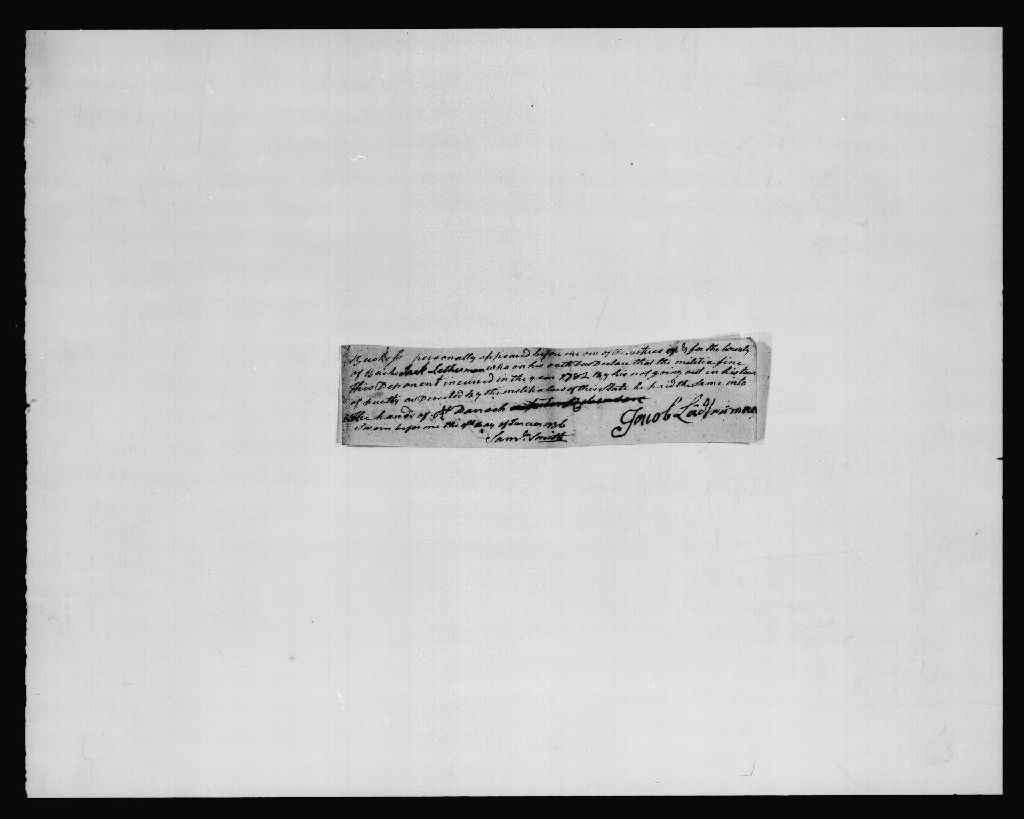 Bucks ss personally appeared before me one of the justices of & for the County
of Bucks Jack Letherman who on his oath Dos Declare that the militia fine
This Deponent incurred in the year 1782 By his not going out in his tour
of duety as Directed by the militia laws of this State he paid the same into
the hands of Darrach
Sworn before me the Day of
Saml Smith
Jacob